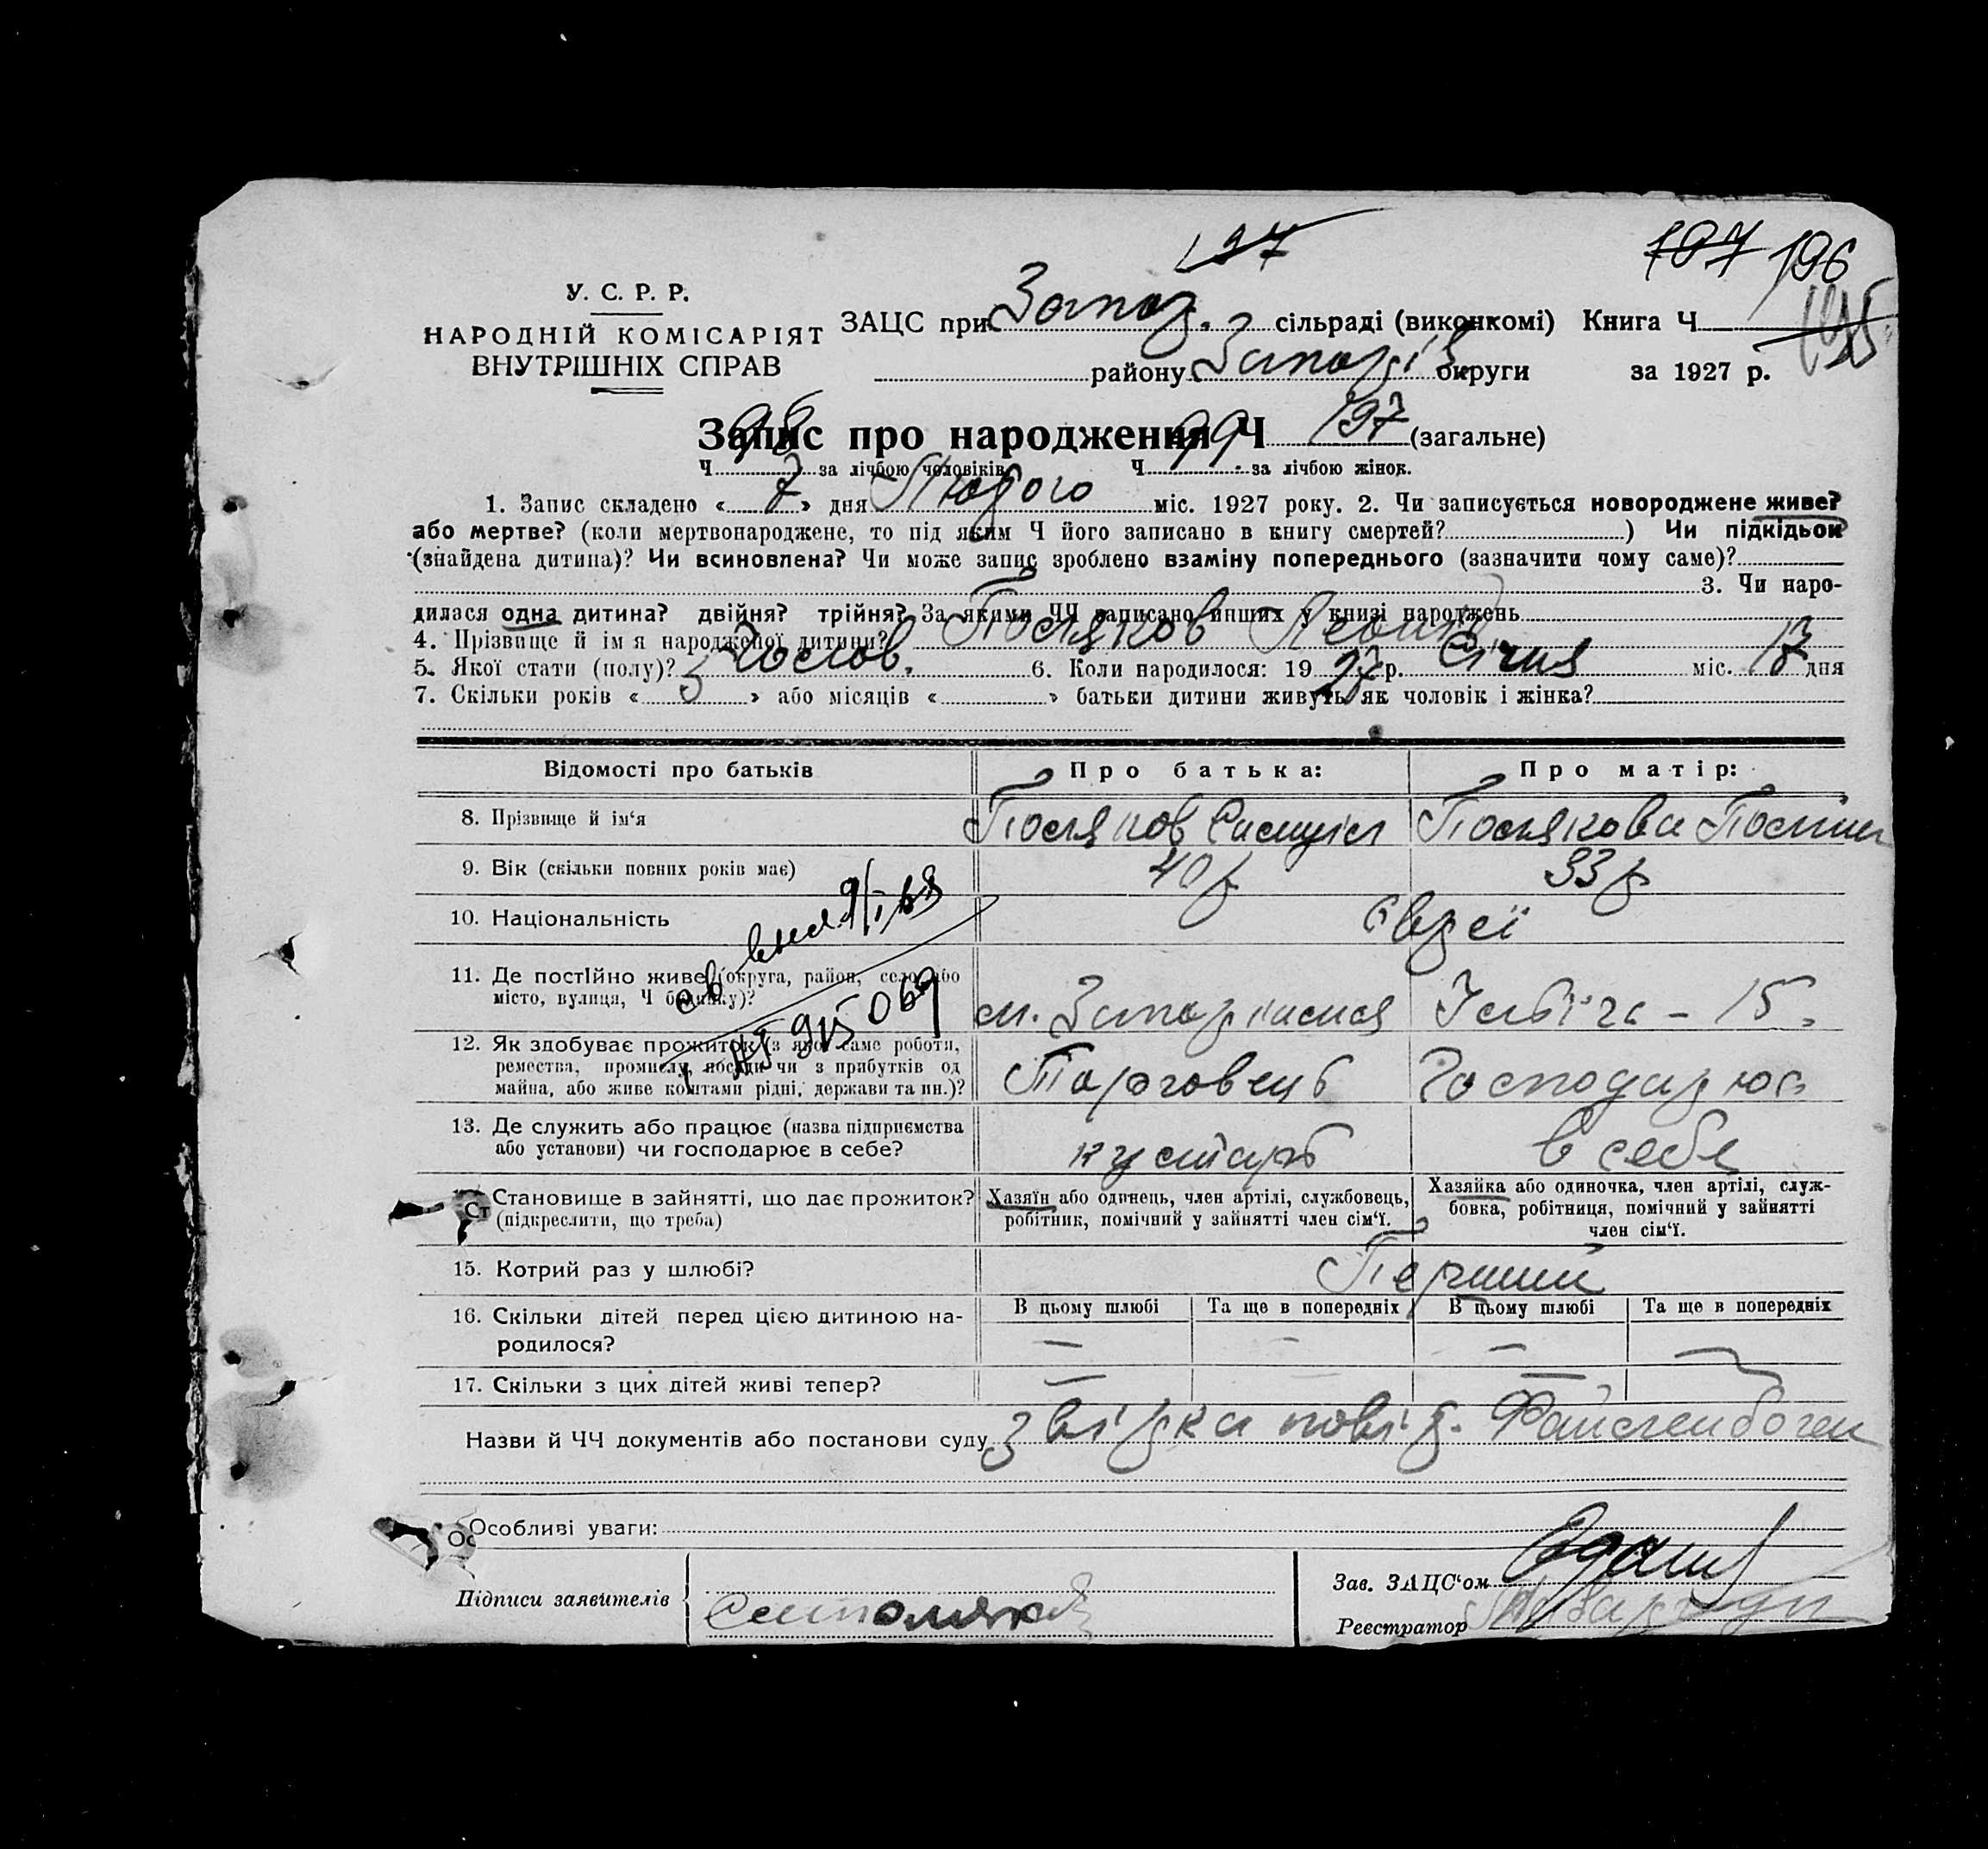 197
197 196
У. С. Р. Р.
НАРОДНІЙ КОМІСАРІЯТ
ВНУТРІШНІХ СПРАВ
ЗАЦС при Запор. сільраді (виконкомі) Книга Ч
району Запоріз округи за 1927 р.
Запис про народження Ч 197 (загальне)
Ч 98 за лічбою чоловіків Ч 99 за лічбою жінок.
1. Запис складено « 7 » дня Лютого міс. 1927 року. 2. Чи записується новороджене живе?
або мертве? (коли мертвонароджене, то під яким Ч його записано в книгу смертей? ) Чи підкідьок
(знайдена дитина)? Чи всиновлена? Чи може запис зроблено взаміну попереднього (зазначити чому саме)?
3. Чи наро-
дилася одна дитина? двійня? трійня? За якими ЧЧ записано инших у книзі народжень
4. Прізвище й ім я народженої дитини? Поляков
5. Якої стати (полу)? Чолов. 6. Коли народилося: 19 27 р. Січня міс. 13 дня
7. Скільки років « 5 » або місяців « » батьки дитини живуть як чоловік і жінка?
Відомості про батьків Про батька: Про матір:
8. Прізвище й ім‘я Поляков Самуїл Полякова Поліна
9. Вік (скільки повних років має) 40 р 33 р
10. Національність Євреї
11. Де постійно живе (округа, район, село або
місто, вулиця, Ч будинку)? м. Запоріжжя - 15.
12. Як здобуває прожиток (з якої саме роботи,
ремества, промислу, посади чи з прибутків од
майна, або живе коштами рідні, держави та ин.)? Торговець Господарює
13. Де служить або працює (назва підприємства
або установи) чи господарює в себе? кустарь в себе
Становище в зайнятті, що дає прожиток?
(підкреслити, що треба)
Хазяїн або одинець, член артілі, службовець,
робітник, помічний у зайнятті член сім‘ї.
Хазяйка або одиночка, член артілі, служ-
бовка, робітниця, помічний у зайнятті
член сім‘ї.
15. Котрий раз у шлюбі? Перший
16. Скільки дітей перед цією дитиною на-
родилося?
В цьому шлюбі Та ще в попередніх В цьому шлюбі Та ще в попередніх
17. Скільки з цих дітей живі тепер?
Назви й ЧЧ документів або постанови суду
Особливі уваги:
Підписи заявителів
Зав. ЗАЦС‘ом
Реєстратор